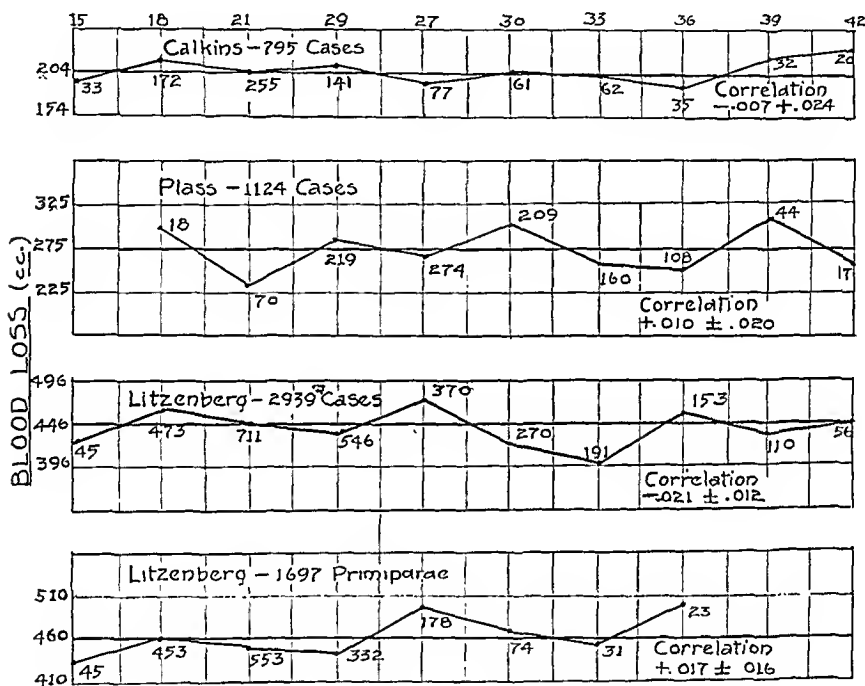 15 18 21 29 27 30 33 36 39 42
Calkins - 795 Cases
204
174
33 172 255 141 77 61 62 35 32 20
Correlation
-.007 + .024
Plass - 1124 Cases
325
275
225
18 70 219 274 209 160 108 44 17
Correlation
+.010 ± .020
BLOOD LOSS (cc.)
Litzenberg - 2939 Cases
496
446
396
45 473 711 546 370 270 191 153 110 56
Correlation
-.021 ± .012
Litzenberg - 1697 Primiparae
510
460
410
45 453 553 332 178 74 31 23
Correlation
+.017 ± .016